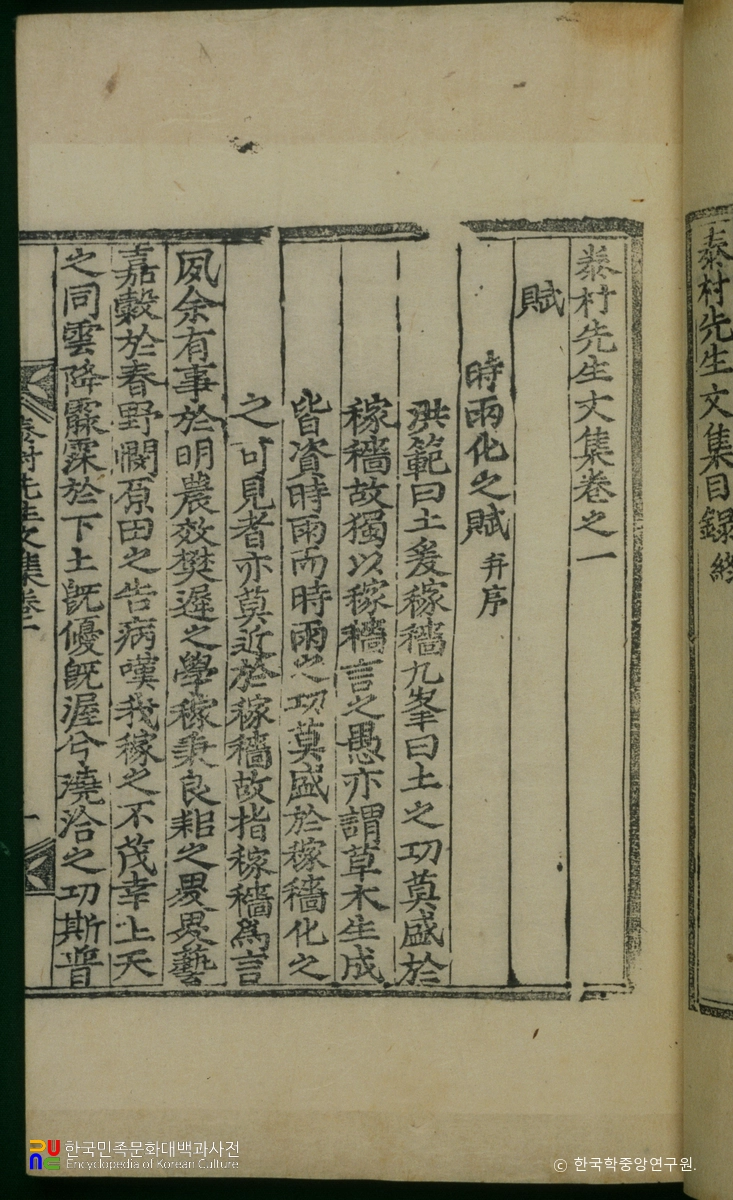 泰村先生文集目錄終
泰村先生文集卷之一
賦
時雨化之賦 幷序
洪範曰土爰稼穡九峯曰土之功莫盛於
稼穡故獨以稼穡言之愚亦謂草木生成
皆資時雨而時雨之功莫盛於稼穡化之
之可見者亦莫近於稼穡故指稼穡爲言
夙余有事於明農效樊遲之學稼秉良耜之畟畟藝
嘉穀於春野憫原田之告病嘆我稼之不茂幸上天
之同雲降霢霂於下土旣優旣渥兮澆洽之功斯普
泰村先生文集卷一
한국민족문화대백과사전
Encyclopedia of Korean Culture
© 한국학중앙연구원.